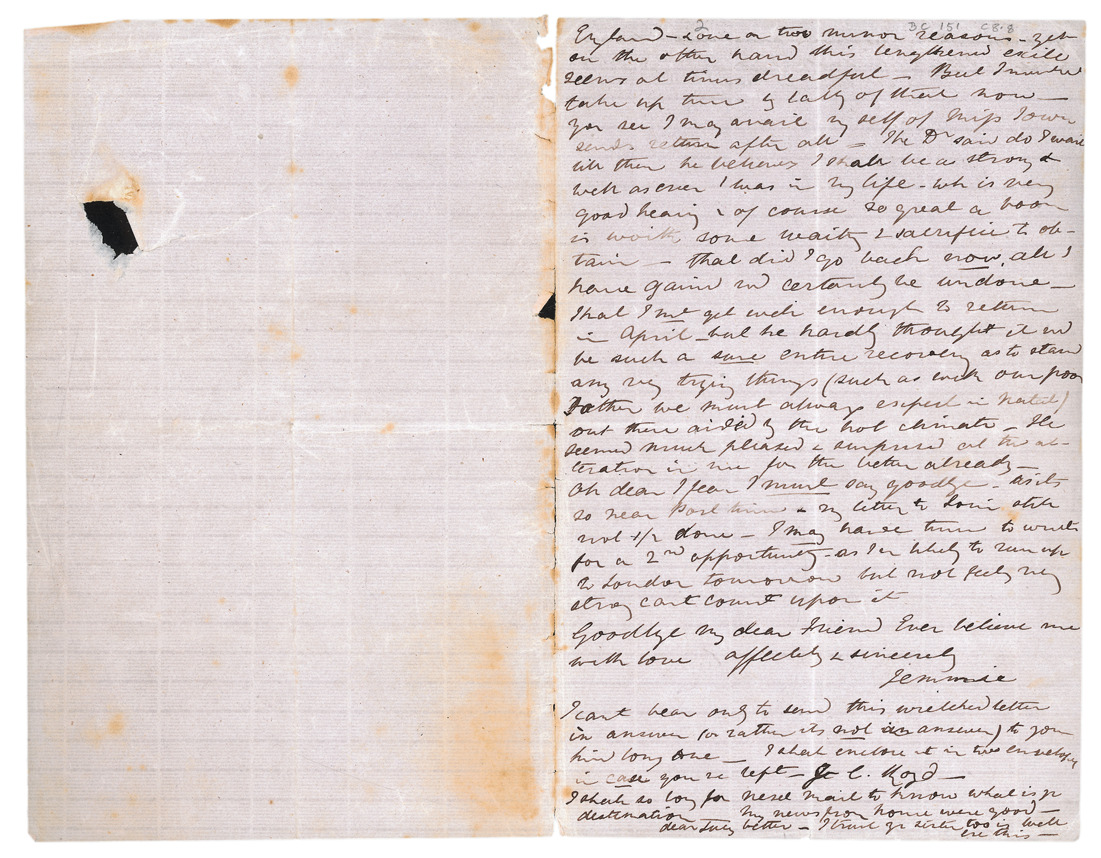 2
BC 151 C8.8
England - one or two minor reasons - yet
on the other hand this lengthened exile
seems at times dreadful - But I mustnt
take up time by talk of that now -
you see I may avail myself of Miss Town
sends return after all - The Dr said do I wait
till then he believes I shall be as strong &
well as ever I was in my life - wh is very
good hearing & of course so great a boon
is worth some waiting & sacrifice to ob-
tain - that did I go back now, all I
have gained wd certainly be undone -
That I mt get well enough to return
in April - but he hardly thought it wd
be such a sure entire recovery as to stand
any very trying things (such as with our poor
Father we must always expect in Natal)
out there aided by the hot climate - He
seemed much pleased & surprised at the al-
teration in me for the better already -
Oh dear I fear I must say goodbye - as its
so near Post time & my letter to still
not 1/2 done - I may have time to write
for a 2nd opportunity - as I'm likely to run up
to London tomorrow but not feeling very
strong cant count upon it
Goodbye my dear Friend Ever believe me
with love affectely & sincerely
Jemmie
I cant bear only to send this wretched letter
in answer (or rather its not an answer) to your
kind long one - I shall enclose it in two envelopes
in case you've left - C. Lloyd -
I shall so long for next mail to know what is yr
destination my news from home were good -
dear Lucy better - I trust yr sister too is well
ere this -